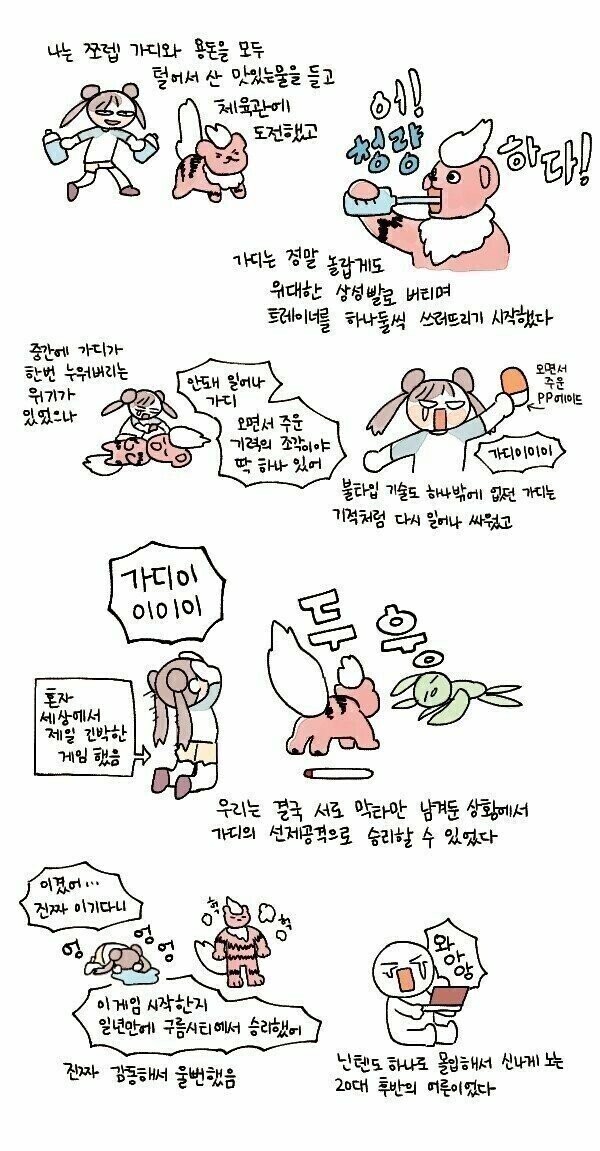 나는 쪼렙 가디와 용돈을 모두
털어서 산 맛있는물을 들고
체육관에
도전했고
어!
청량
하다!
가디는 정말 놀랍게도
위대한 상성빨로 버티며
트레이너를 하나둘씩 쓰러뜨리기 시작했다
중간에 가디가
한번 누워버리는
위기가
있었으나
안돼 일어나
가디
오면서 주운
기력의 조각이야
딱 하나 있어
오면서
주운
PP에이드
가디이이이이
불타입 기술도 하나밖에 없던 가디는
기적처럼 다시 일어나 싸웠고
가디이
이이이이
두웅
혼자
세상에서
제일 긴박한
게임 했음
우리는 결국 서로 막타만 남겨둔 상황에서
가디의 선제공격으로 승리할 수 있었다
이겼어...
진짜 이기다니
엉
엉엉
헉
헉
이게임 시작한지
일년만에 구름시티에서 승리했어
진짜 감동해서 울뻔했음
와
아
앙
닌텐도 하나로 몰입해서 신나게 노는
20대 후반의 어른이었다